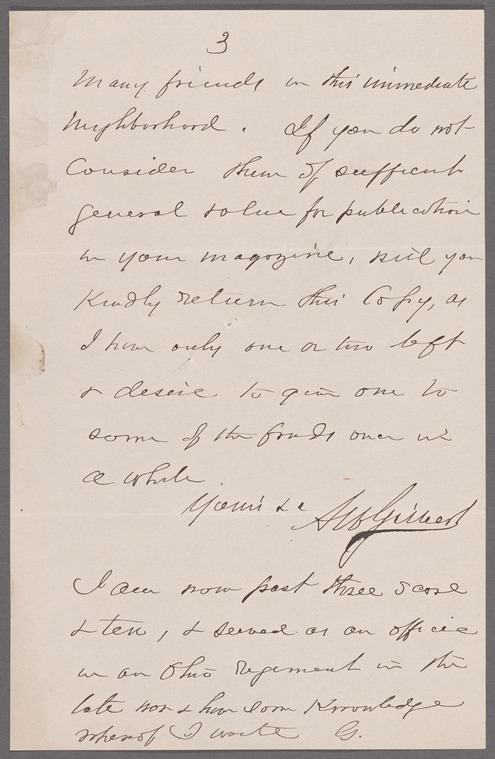 3
Many friends in this immediate
Neighborhood. If you do not
Consider them of sufficient
general value for publication
in your magazine, will you
Kindly return this Copy, as
I have only one or two left
& desire to give one to
some of the friends once in
a while
Yours &c
I am now past three score
& ten, & served as an officer
in an Ohio Regiment in the
late war & have some Knowledge
whereof I write G.